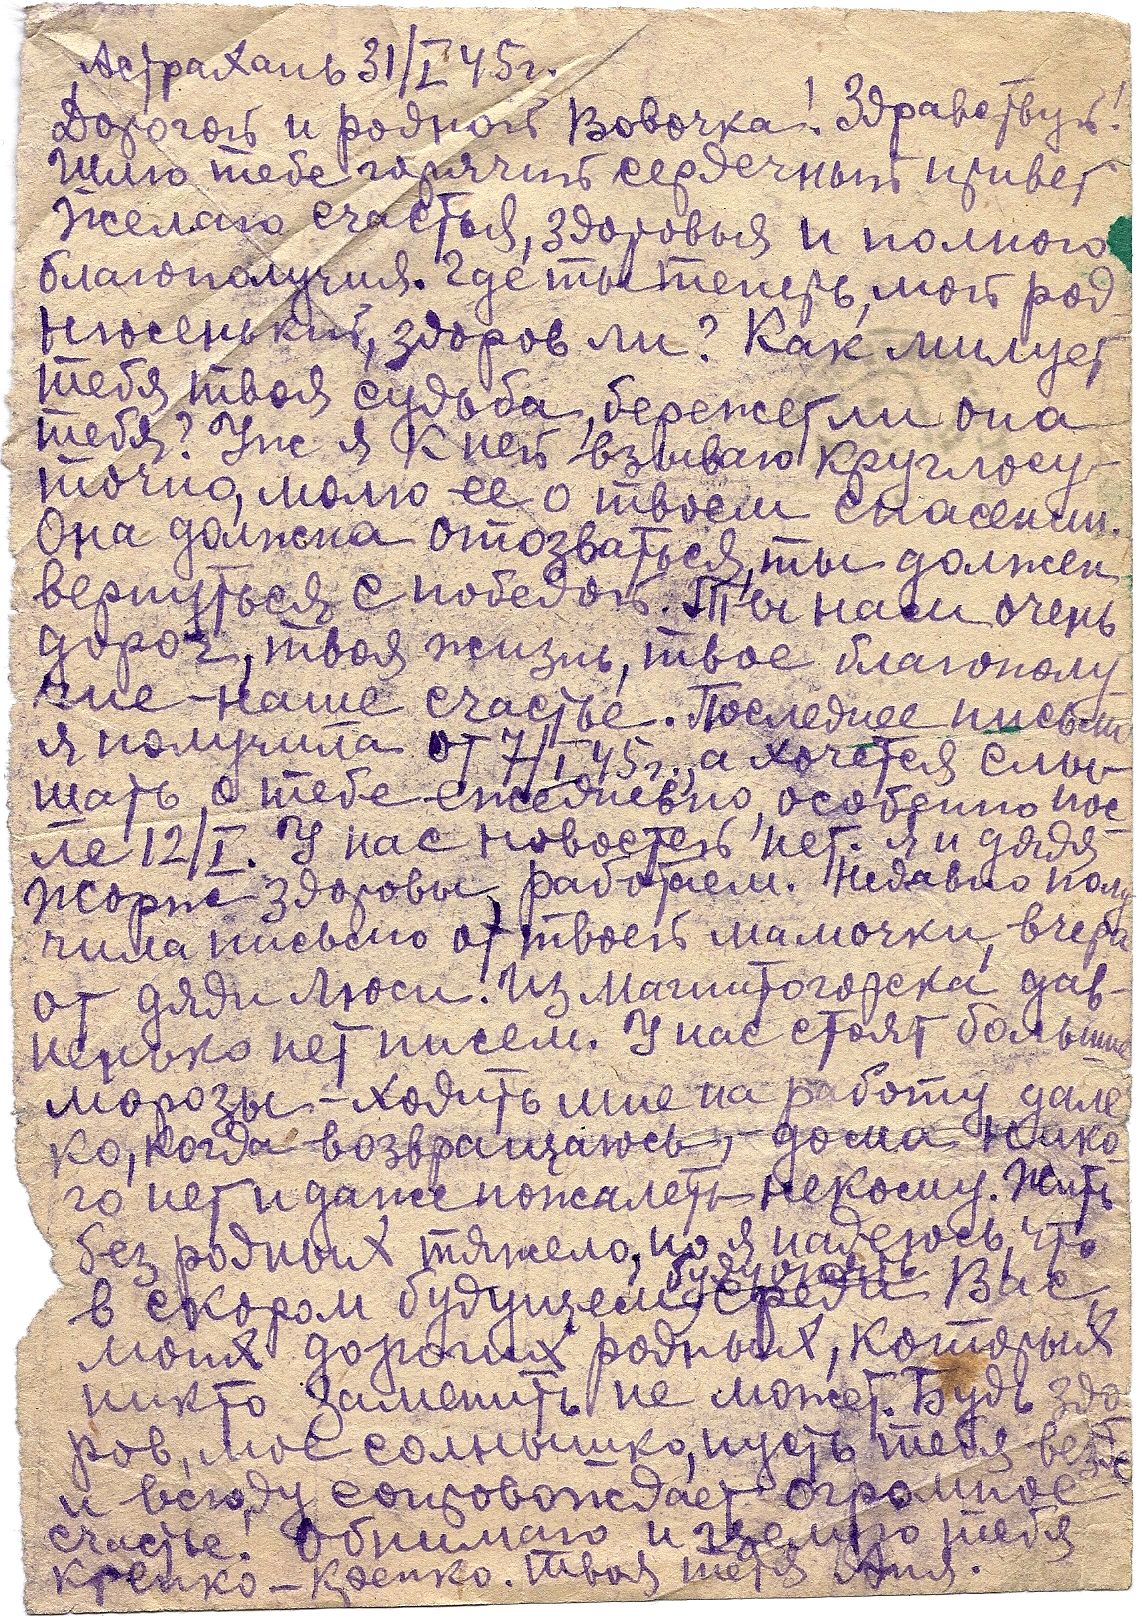 Астрахань 31/I 45г.
Дорогой и родной Вовочка! Здравствуй!
Шлю тебе горячий сердечный привет
Желаю счастья, здоровья и полного
благополучия. Где ты теперь, мой род-
нюсенький, здоров ли? Как милует
тебя твоя судьба, бережет ли она
тебя? Уж я к ней взываю круглосу-
точно, молю ее о твоем спасении.
Она должна отозваться, ты должен
вернуться с победой. Ты нам очень
дорог, твоя жизнь, твое благополу-
чие - наше счастье. Последнее письмо
я получила от 7/I 45г., а хочется слы-
шать о тебе ежедневно, особенно пос-
ле 12/I. У нас новостей нет. Я и дядя
Жорж здоровы, работаем. Недавно полу-
чила письмо от твоей мамочки, вчера
от дяди Люси. Из Магнитогорска дав-
ненько нет писем. У нас стоят большие
морозы - ходить мне на работу дале-
ко, когда возвращаюсь, - дома нико-
го нет и даже пожалеть некому. Жить
без родных тяжело, но я надеюсь, что
в скором будущем буду опять среди Вас,
моих дорогих родных, которых
никто заменить не может. Будь здо-
ров, мое солнышко, пусть тебя везде
и всюду сопровождает огромное
счастье! Обнимаю и целую тебя
крепко - крепко. Твоя тетя Аня.